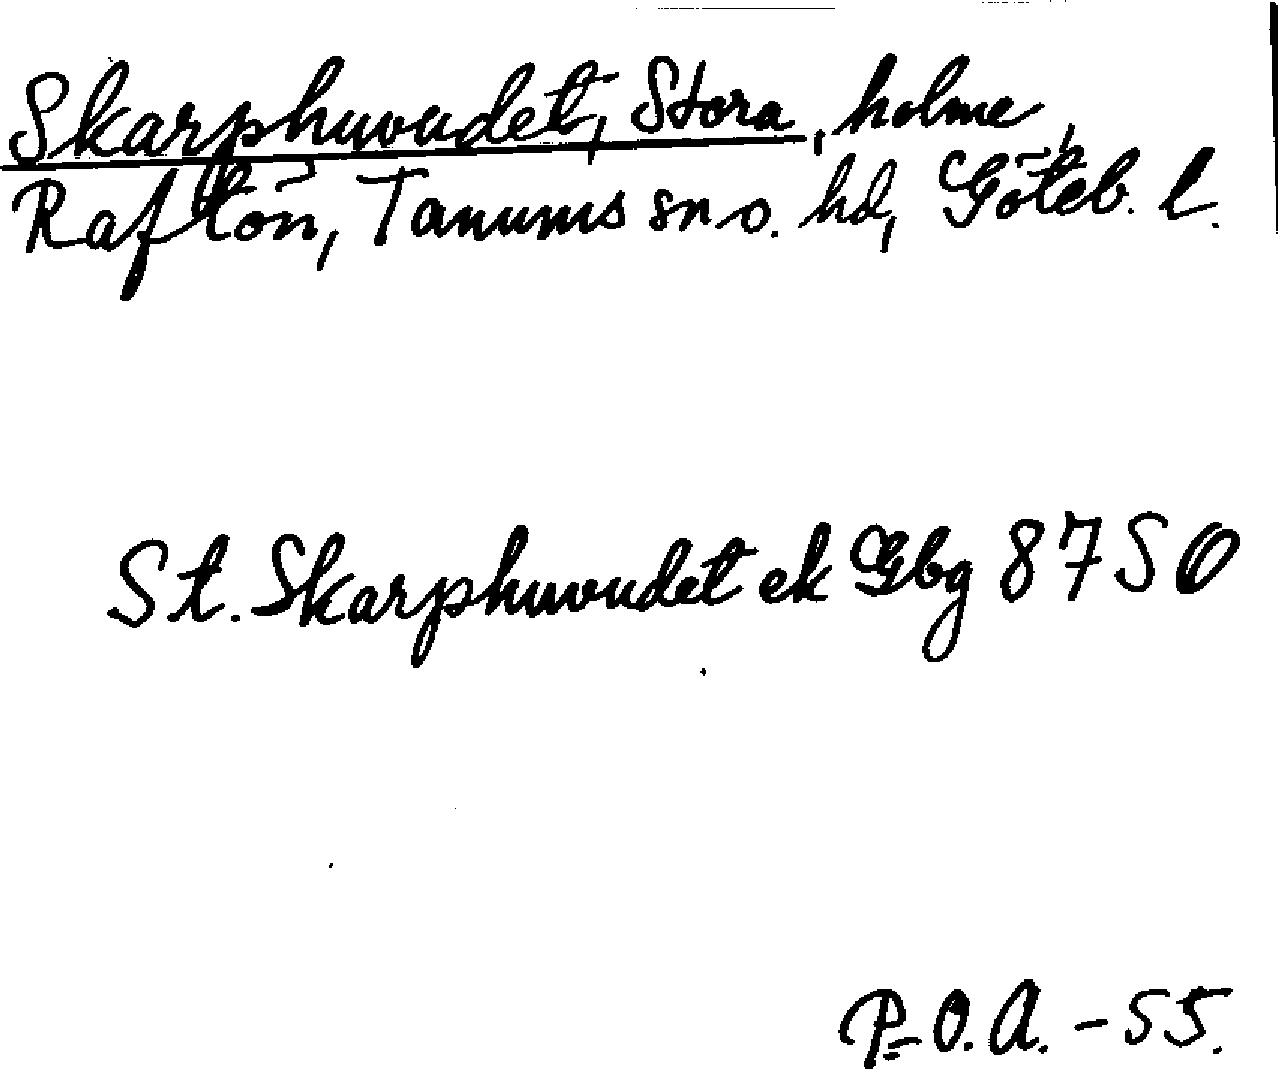 Skarphuvudet, Stora, holme,
Raftön, Tanums sn o. hd, Göteb. l.
St. Skarphuvudet ek Gbg 87 SO
P.O.A. - 55.